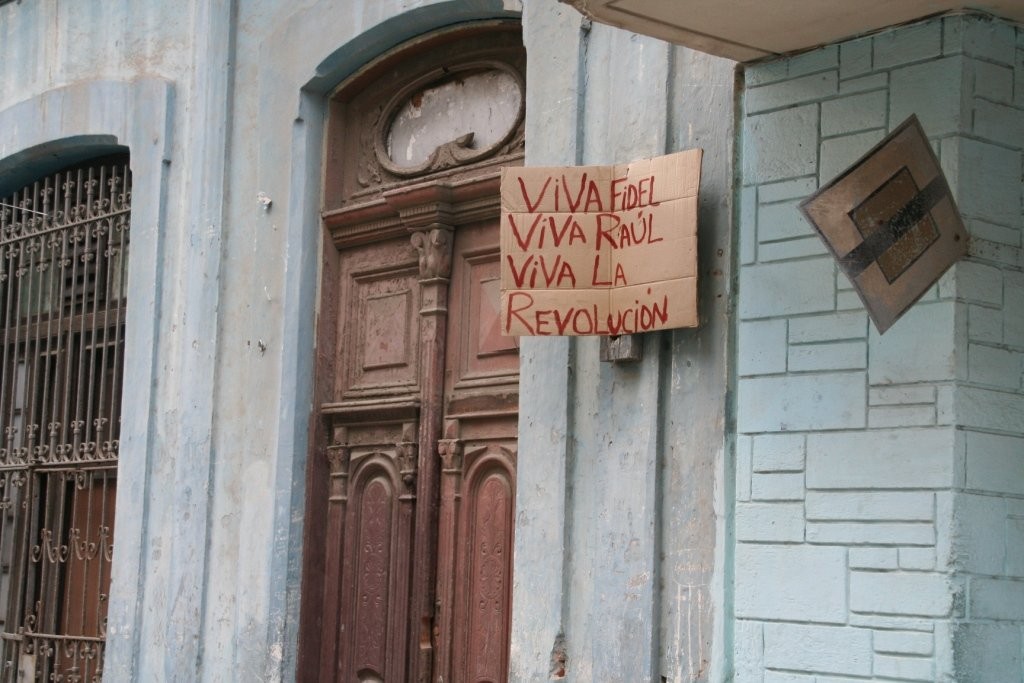 VIVA FIDEL
VIVA RAÚL
VIVA LA
REVOLUCIÓN